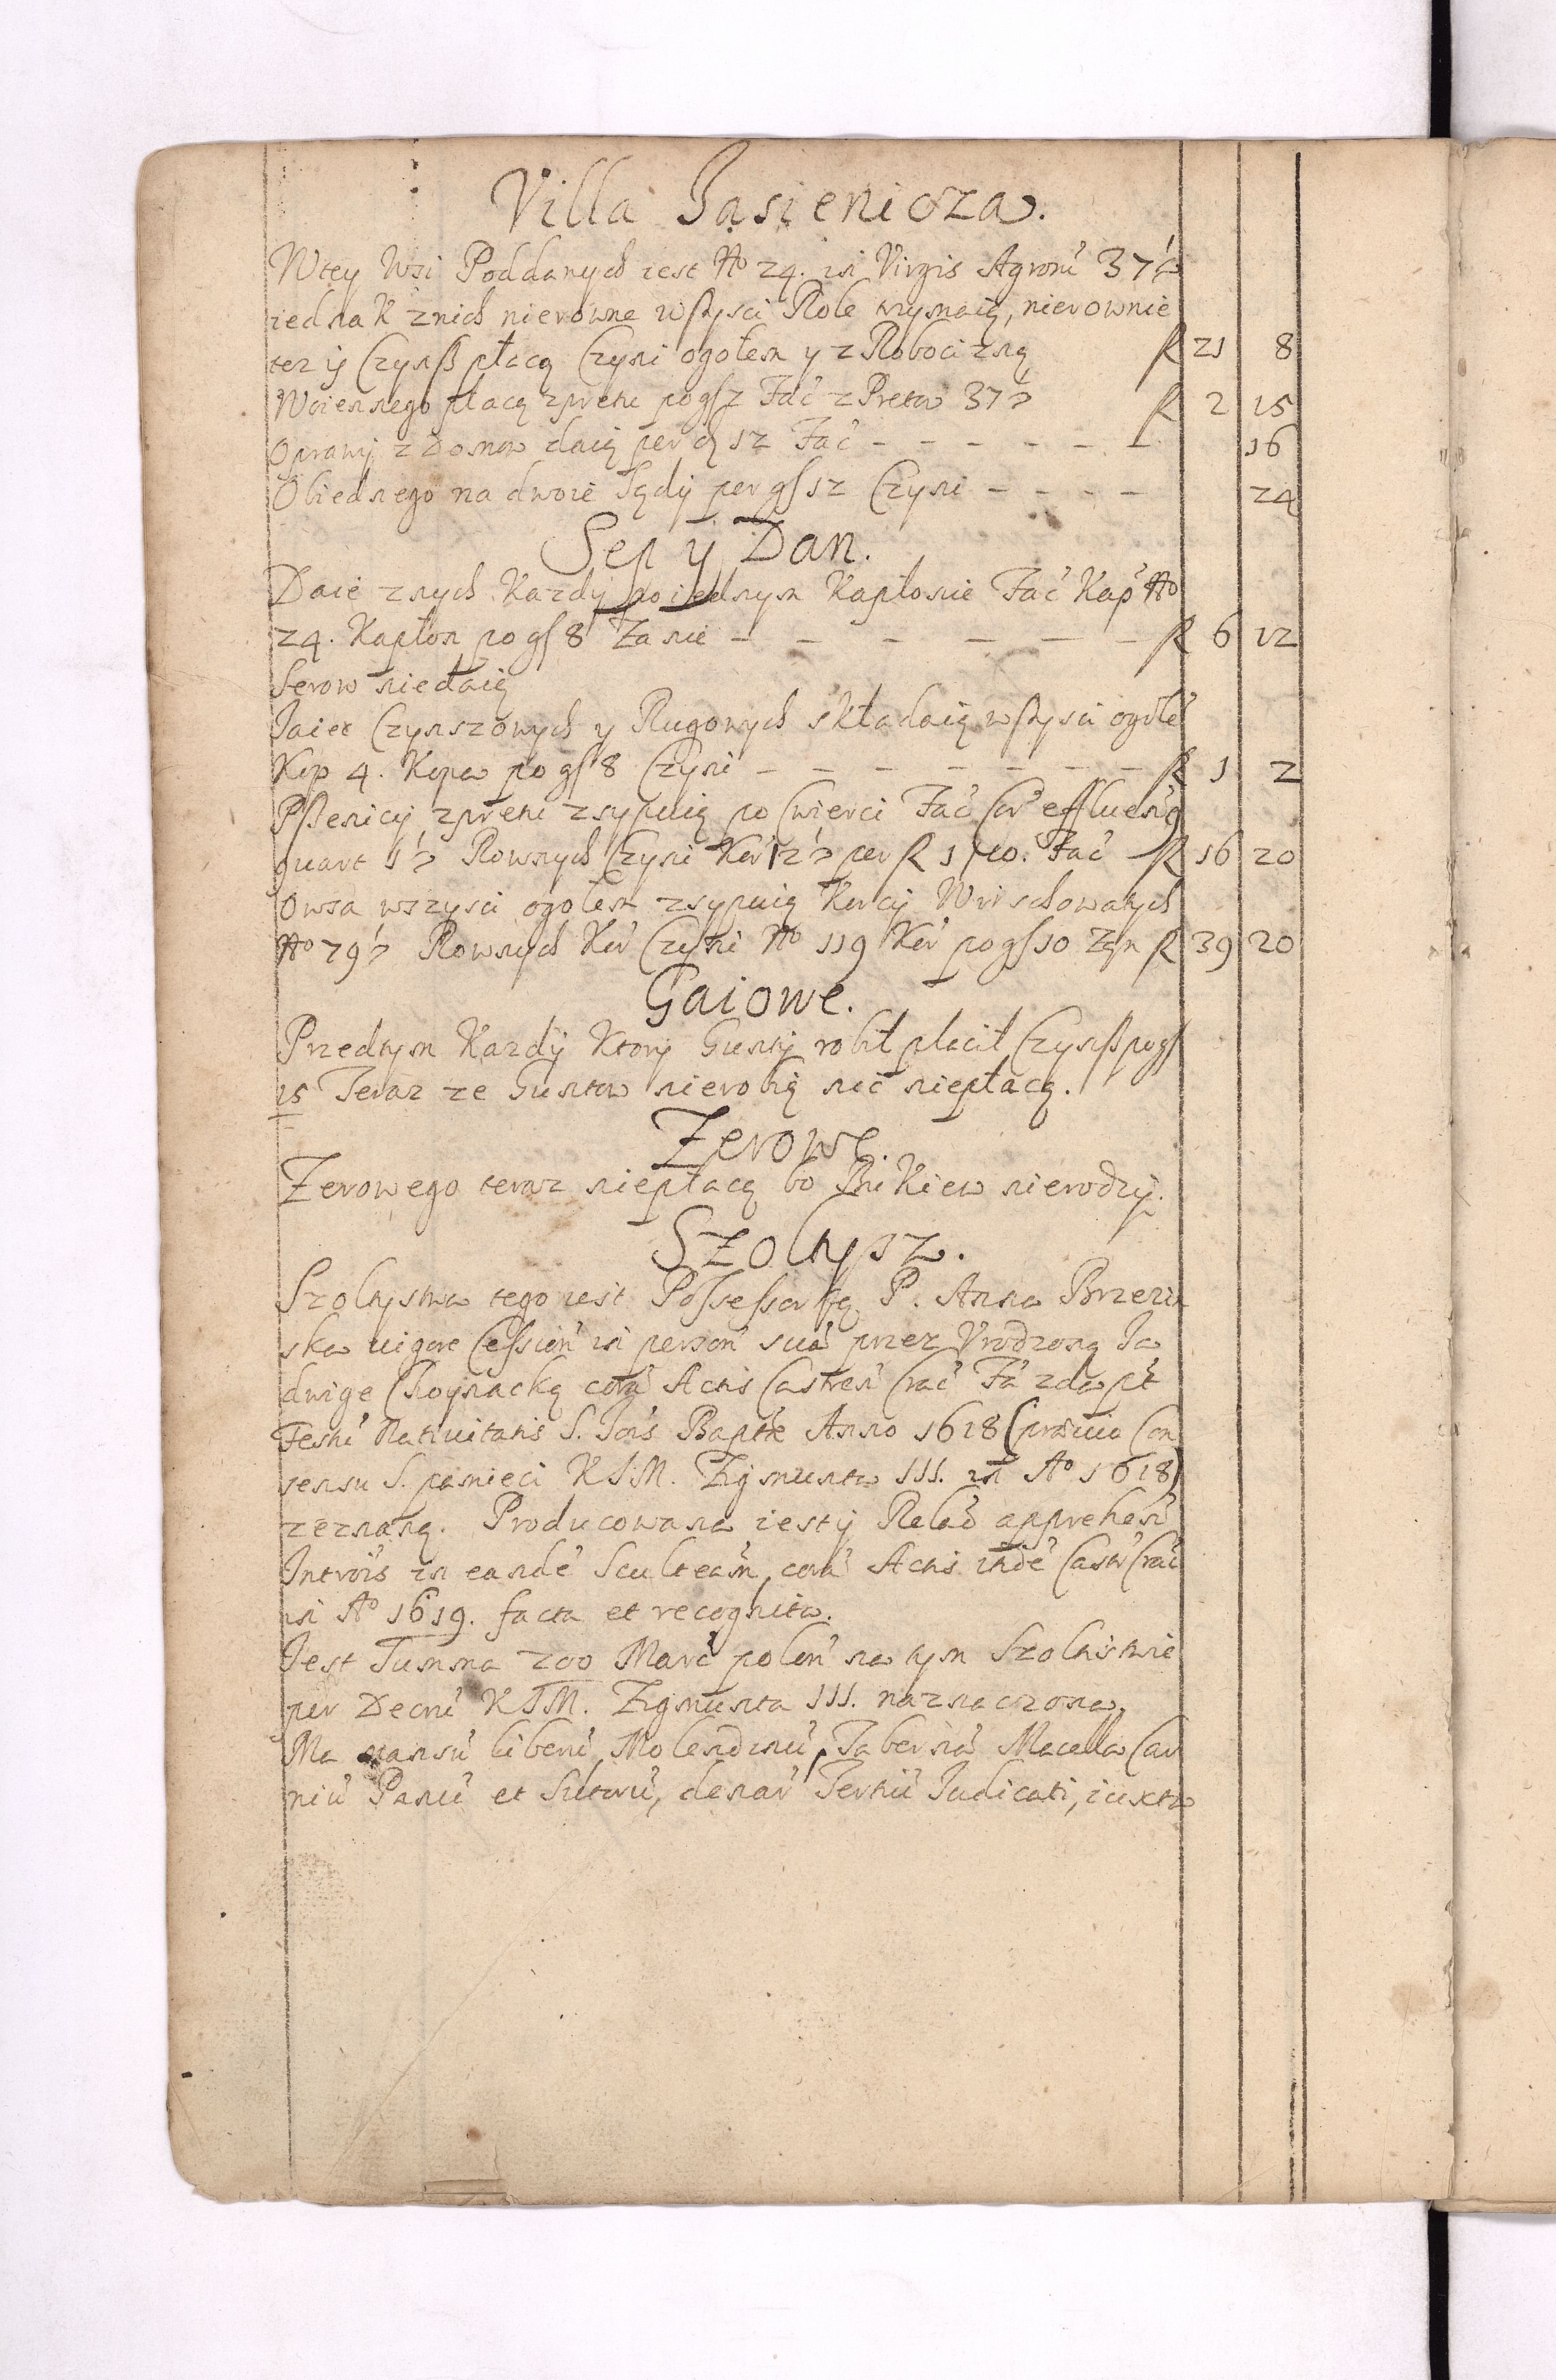 Villa Jasienicza.
Wtey Wsi Poddanych iest No 24. in Virgis Agroru 37½
iednak znich nierowne wszysci Role trzymaią, nierownie
tez ÿ Czynsz płacą Czyni ogołem y z Robocizną R 21 8
Woiennego płacą zprętu po gſ 2 Fac z Pretow 37½ R 2 15
Oprawÿ z Domow daią per ꝗ 12 Fac - - - - - - 16
Obiednego na dwoie Sądÿ per gſ 12 Czyni - - - - 24
Sep ÿ Dan.
Daie znych Kazdÿ po iednym Kapłonie Fac Kap No
24. Kapłon po gſ 8 Za nie - - - - - - R 6 12
Serow niedaią
Jaiec Czynszowych y Rugowych składaią wszysci ogołe
Kop 4. Kopa po gſ 8 Czyni - - - - - - R 1 2
Pszenicÿ zprętu zsypuią po Cwierci Fac Cor effluens
quart 1½ Rownych Czyni Kor 12½ per R 1/10. Fac - R 16 20
Owsa wszysci ogołem zsypuią Korcÿ Wirschowatych
No 79½ Rownych Kor Czyni No 119 Kor po gſ 10 R 39 20
Gaiowe.
Przedtym Kazdÿ Ktory Guntÿ robił płacił Czynsz po gſ
15 Teraz ze Guntow nierobią nic niepłacą.
Zerowe.
Zerowego teraz niepłacą bo Bukiew nierodzÿ.
Szoltysz.
Szoltystwa tego iest Possessorką P. Anna Brzezin
ska vigore Cession in person sua przez Vrodzoną Ja
dwige Choynacką cora Actis Castren Crac
Festu Natiuitatis S. Jois Baptae Anno 1618 (praeuio Con
sensu S. pamieci KJM. Zÿgmunta III. in Ao 1618)
zeznaną. Producowana iest ÿ Relao apprehens
Introis in eande Scultetiam, cora Actis inde Castr Crac
in Ao 1619. facta et recognita.
Jest Summa 200 Marc polon na tym Szoltistwie
per Decru KJM. Zigmunta III. naznaczona.
Ma mansu liberu, Molendinu, Taberna Macella Car
niu Panu et Sutoru, denar Tertiu Judicati, iuxta